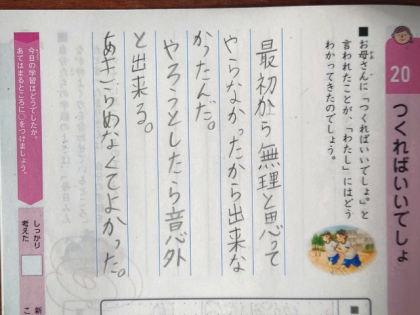 20
つくればいいでしょ
■お母さんに「つくればいいでしょ。」と
言われたことが、「わたし」にはどう
わかってきたのでしょう。
最初から無理と思って
やらなかったから出来な
かったんだ。
やろうとしたら意外
と出来る。
あきらめなくてよかった。
今日の学習はどうでしたか。
あてはまるところに○をつけましょう。
しっかり
考えた
新
こ